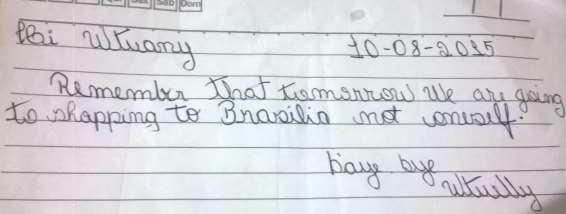 Sab Dom
Hi Wtuany 10-08-2015
Remember that tomorrow we are going
to shopping to Brazilia not
baye bye
Wtully